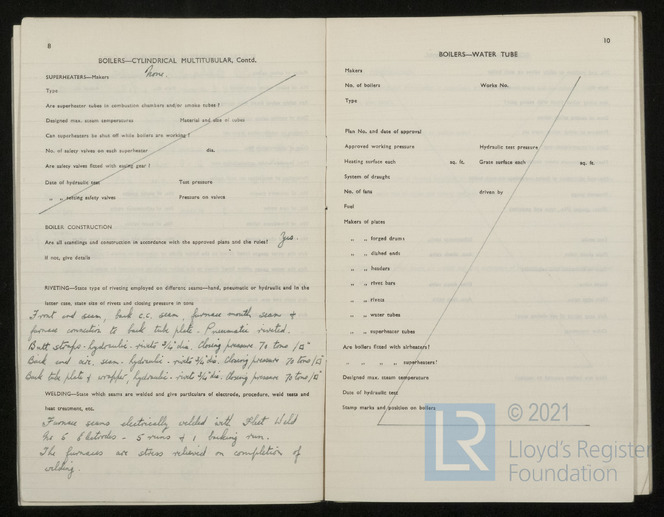 8
BOILERS—CYLINDRICAL MULTITUBULAR, Contd.
SUPERHEATERS—Makers None.
Type
Are superheater tubes in combustion chambers and/or smoke tubes?
Designed max. steam temperatures Material and size of tubes
Can superheaters be shut off while boilers are working?
No. of safety valves on each superheater dia.
Are safety valves fitted with easing gear?
Date of hydraulic test Test pressure
„ „ setting safety valves Pressure on valves
BOILER CONSTRUCTION
Are all scantlings and construction in accordance with the approved plans and the rules? Yes.
If not, give details
RIVETING—State type of riveting employed on different seams—hand, pneumatic or hydraulic and in the
latter case, state size of rivets and closing pressure in tons
Front end seam, back c.c. seam, furnace mouth seams &
furnace connection to back tube plate - Pneumatic riveted.
Butt straps - hydraulic - rivets 3/4" dia. Closing pressure 70 tons/□"
Back end cir. seam - hydraulic - rivets 3/4" dia. Closing pressure 70 tons/□"
Back tube plate & wrapper, hydraulic - rivets 3/4" dia. Closing pressure 70 tons/□"
WELDING—State which seams are welded and give particulars of electrode, procedure, weld tests and
heat treatment, etc.
Furnace seams electrically welded with Fleet Weld
No 5 Electrodes - 5 runs & 1 backing run.
The furnaces are stress relieved on completion of
welding.
10
BOILERS—WATER TUBE
Makers
No. of boilers Works No.
Type
Plan No. and date of approval
Approved working pressure Hydraulic test pressure
Heating surface each sq. ft. Grate surface each sq. ft.
System of draught
No. of fans driven by
Fuel
Makers of plates
„ „ forged drums
„ „ dished ends
„ „ headers
„ „ rivet bars
„ „ rivets
„ „ water tubes
„ „ superheater tubes
Are boilers fitted with airheaters?
„ „ „ „ superheaters?
Designed max. steam temperature
Date of hydraulic test
Stamp marks and position on boilers
LR
© 2021
Lloyd's Register
Foundation